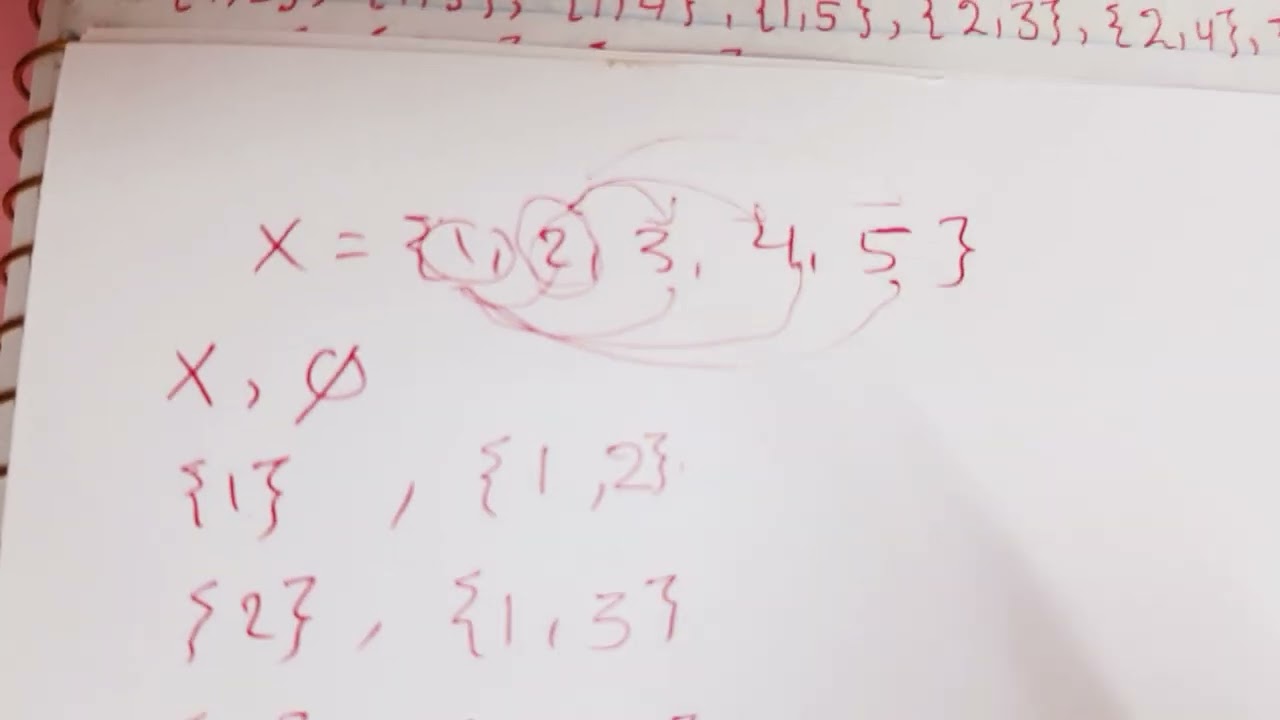 {1,4}, {1,5}, {2,3}, {2,4},
X = {1, 2, 3, 4, 5}
X, ∅
{1}, {1,2}
{2}, {1,3}